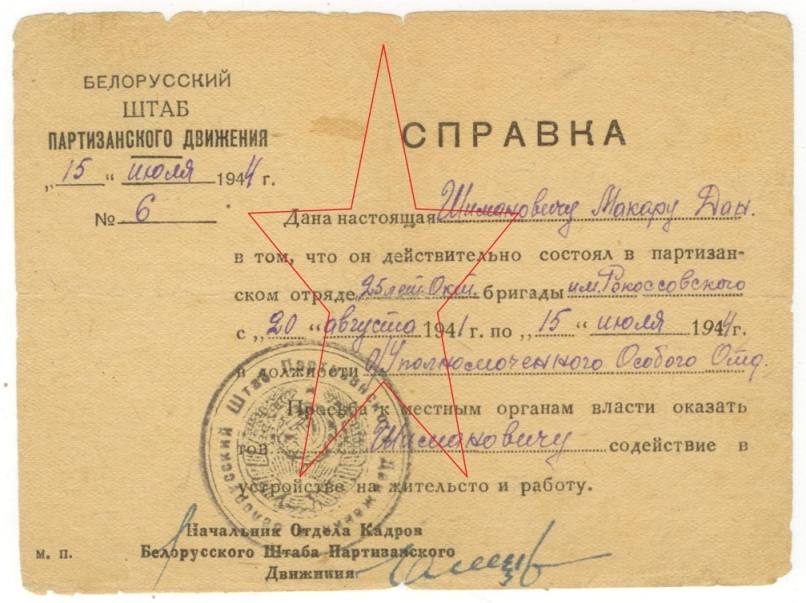 БЕЛОРУССКИЙ
ШТАБ
ПАРТИЗАНСКОГО ДВИЖЕНИЯ
„15“ июля 1944 г.
№ 6
СПРАВКА
Дана настоящая Шимановичу Макару Дан.
в том, что он действительно состоял в партизан-
ском отряде 25 лет Окт. бригады им. Рокоссовского
с „20“ августа 1941 г. по „15“ июля 1944 г.
в должности о/Уполномоченного Особого Отд.
Просьба к местным органам власти оказать
тов. Шимановичу содействие в
устройстве на жительсто и работу.
Начальник Отдела Кадров
м. п. Белорусского Штаба Партизанского
Движниия
Белорусский Штаб Партизанского Движения